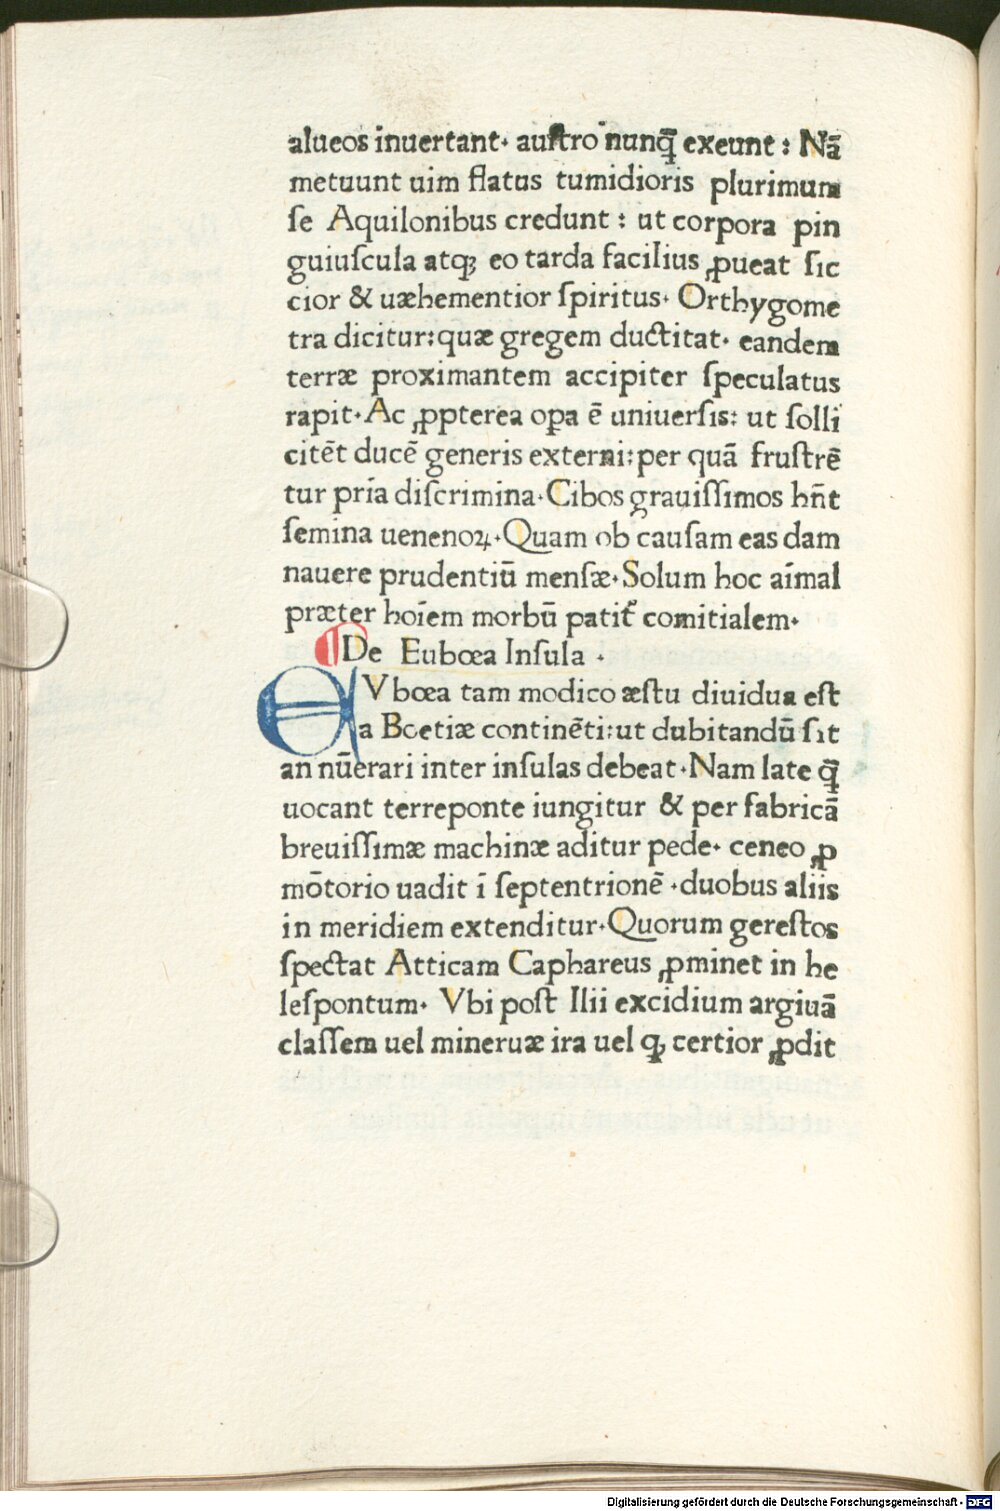 alueos inuertant· auſtro nunq̄ exeunt : Nā
metuunt uim flatus tumidioris plurimum
ſe Aquilonibus credunt : ut corpora pin
guiuſcula atq; eo tarda facilius ꝓueat ſic
cior & uæhementior ſpiritus· Orthygome
tra dicitur: quæ gregem ductitat· eandem
terræ proximantem accipiter ſpeculatus
rapit· Ac ꝓpterea oꝑa ē uniuerſis: ut ſolli
citēt ducē generis externi: per quā fruſtrē
tur pria diſcrimina· Cibos grauiſſimos hn̄t
ſemina uenenoꝝ· Quam ob cauſam eas dam
nauere prudentiū menſæ· Solum hoc aīmal
præter hoīem morbū patit̄ comitialem·
De Eubœa Inſula ·
EVbœa tam modico æſtu diuidua est
a Boetiæ continēti: ut dubitandū ſit
an nūerari inter inſulas debeat· Nam late q̄
uocant terreponte iungitur & per fabricā
breuiſſimæ machinæ aditur pede· ceneo ꝓ
mōtorio uadit ī ſeptentrionē · duobus aliis
in meridiem extenditur· Quorum gereſtos
ſpectat Atticam Caphareus ꝓminet in he
leſpontum· Vbi poſt Ilii excidium argiuā
claſſem uel mineruæ ira uel q; certior ꝓdit
Digitalisierung gefördert durch die Deutsche Forschungsgemeinschaft - DFG